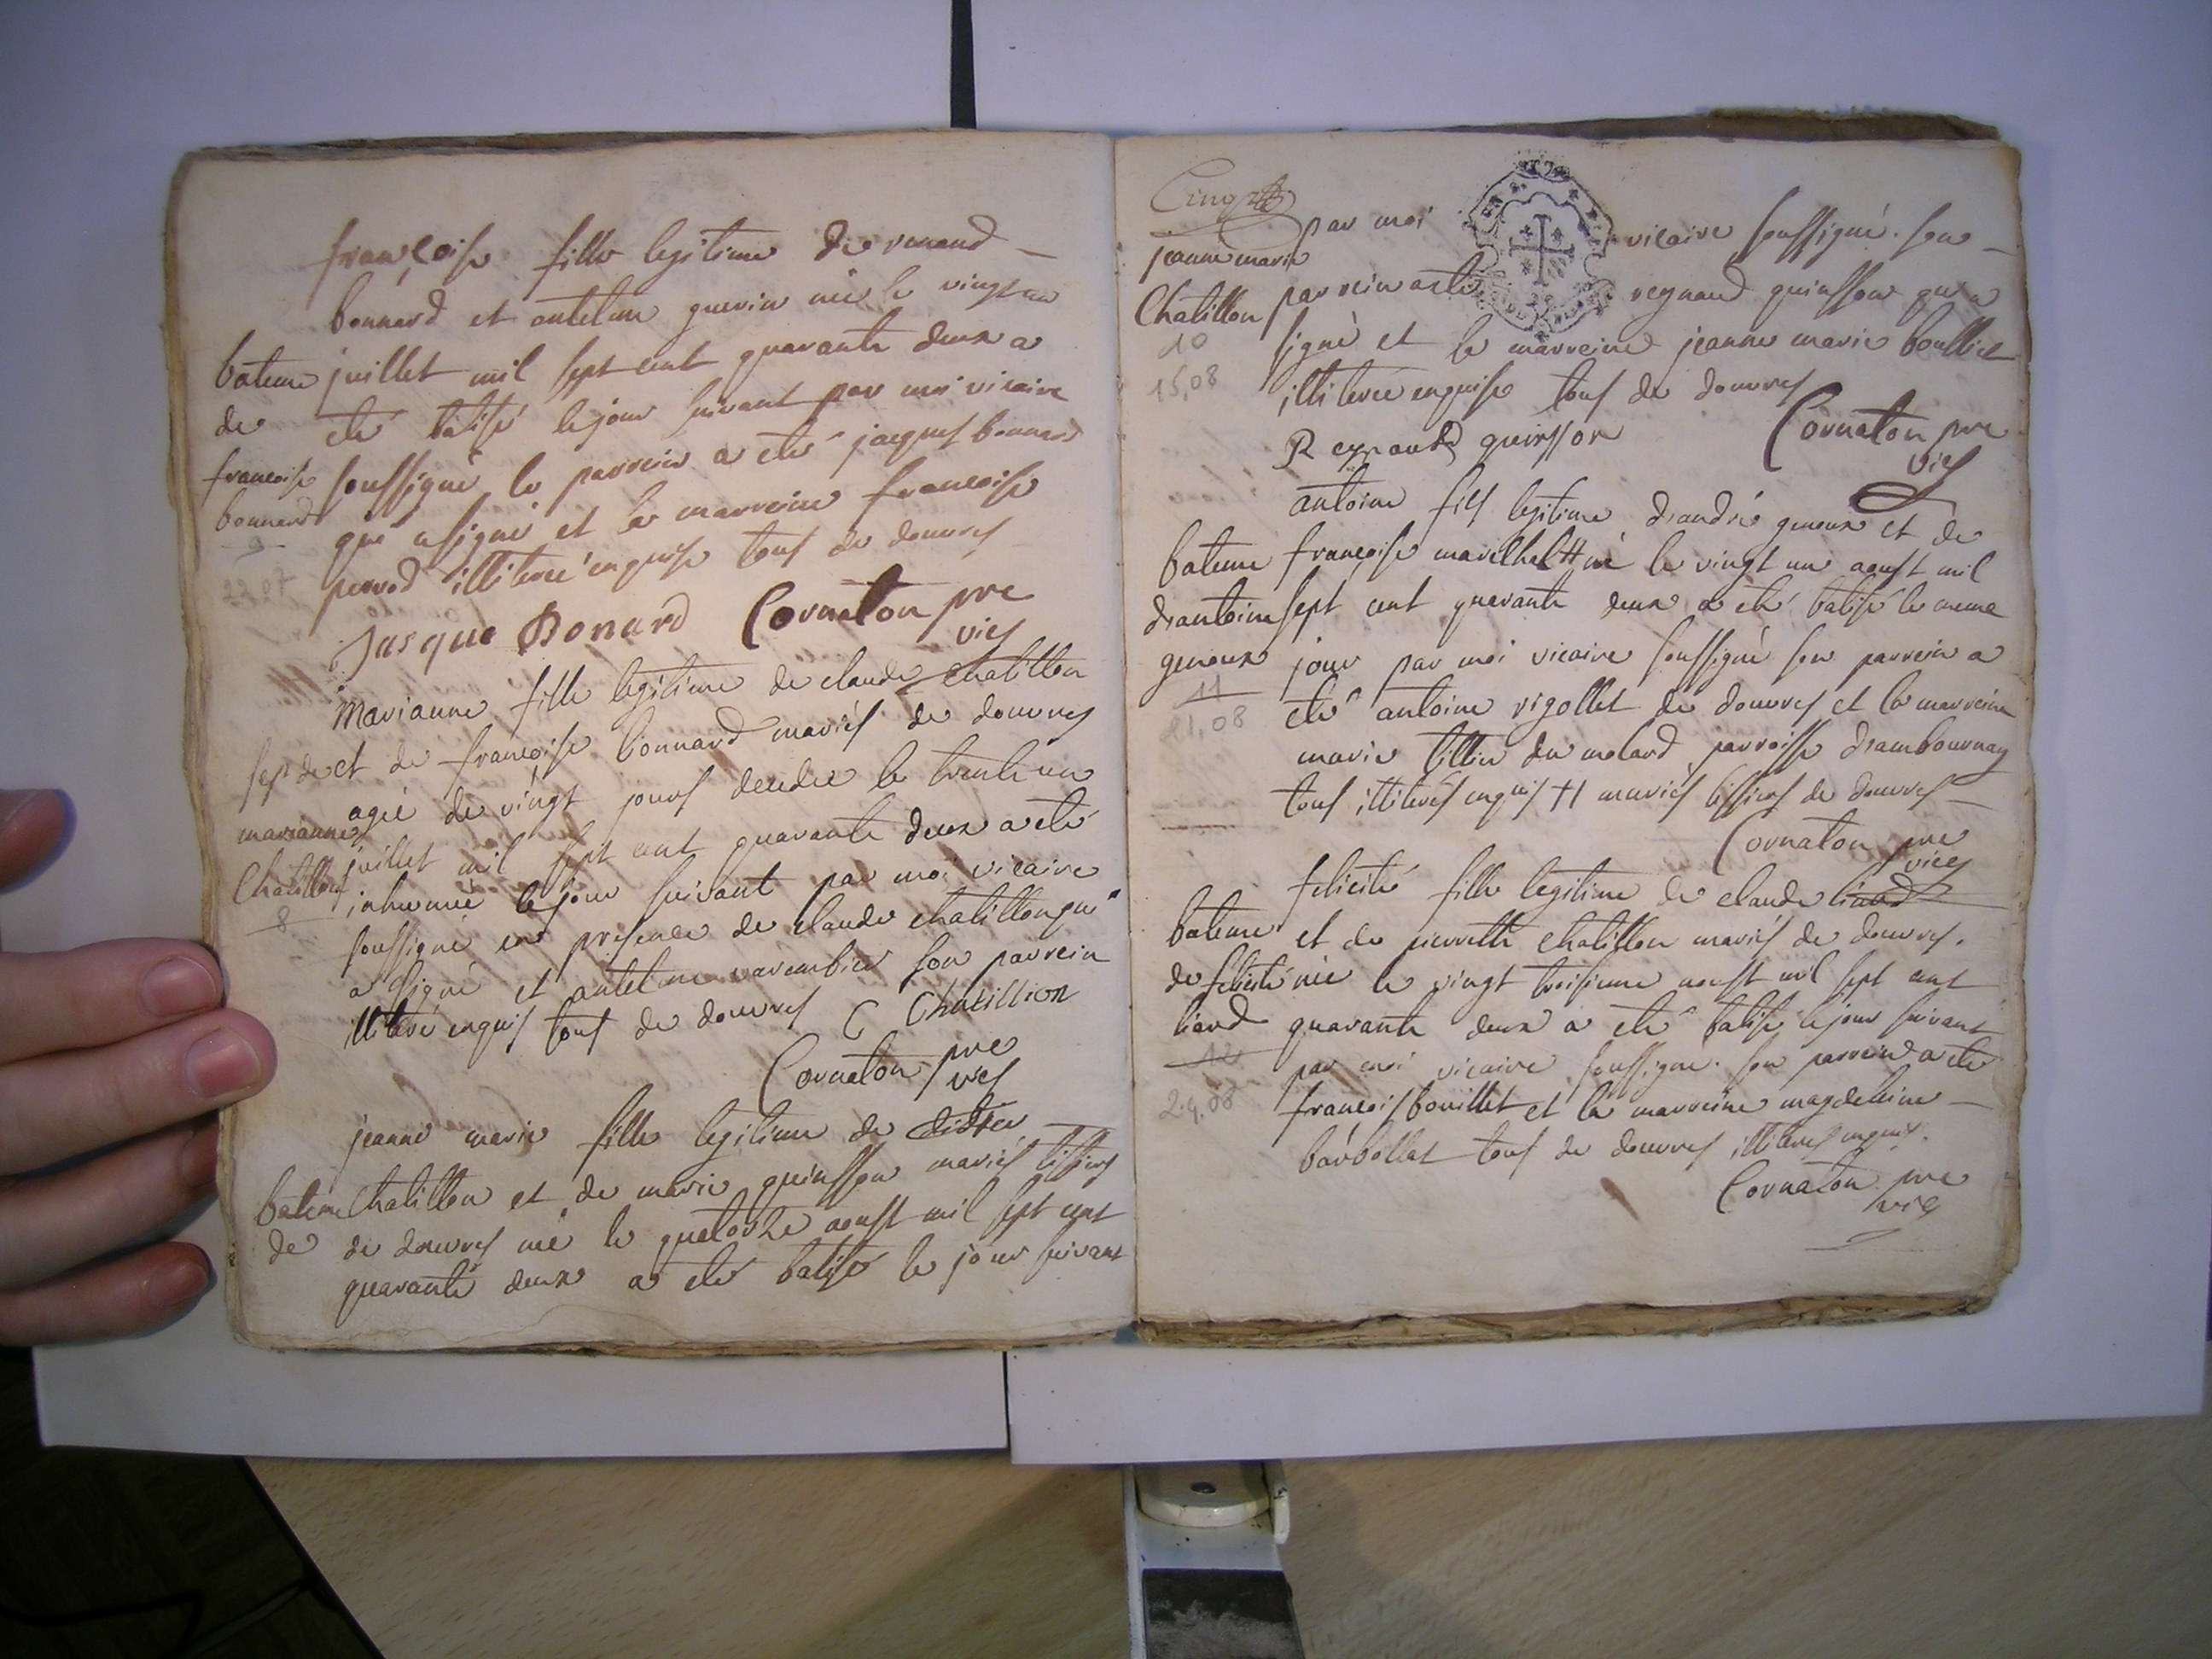 françoise fille legitime de renaud
bonnard et antelme guerin née le vingt un
bateme juillet mil sept cent quarante deux a
de eté batisé le jour suivant par moi vicaire
françoise soussigné le parrein a eté jacques bonnard
bonnard qui a signé et la marreine françoise
9
perrod illiterée enquise tous de douvres
22,07
Jasque Bonard Cornaton pre
vics
marianne fille legitime de claude chatillon
sep de et de françoise bonnard mariés de douvres
agée de vingt jours decedée le trente un
marianne
juillet mil sept cent quarante deux a eté
Chatillon inhumée le jour suivant par moi vicaire
8
soussigné en presence de claude chatillon qui
a signé et antelme varembier son parrein
illiteré enquis tous de douvres C Chatillion
Cornaton pre
vics
jeanne marie fille legitime de didier
bateme chatillon et de marie quinsson mariés tissiers
de de douvres née le quatorze aoust mil sept cent
quarante deux a eté batisé le jour suivant
Cinq
par moi vicaire soussigné. son
jeanne marie
Chatillon parrein a eté reynaud quinsson qui a
10
signé et la marreine jeanne marie boulliet
15,08
illiterée enquise tous de douvres
Reynaud quinsson Cornaton pre
vics
antoine fils legitime d'andré genoux et de
bateme françoise marilhat # né le vingt un aoust mil
d'antoine sept cent quarante deux a eté batisé le meme
genoux jour par moi vicaire soussigné son parrein a
11
eté antoine rigollet de douvres et la marreine
21,08
marie tillier du molard parroisse d'ambournay
tous illiterés enquis # mariés tissiers de douvres
Cornaton pre
vics
felicité fille legitime de claude liand
bateme et de pierrette chatillon mariés de douvres.
de felicité née le vingt troisieme aoust mil sept cent
liand quarante deux a eté batisé le jour suivant
12
par moi vicaire soussigné. son parrein a eté
24,08
françois bouillet et la marreine magdeleine
barbollat tous de douvres illiterés enquis.
Cornaton pre
vic